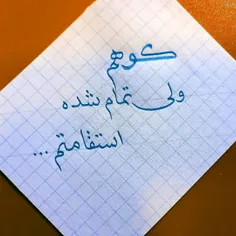 کوهم
ولی تمام شده
استقامتم ...